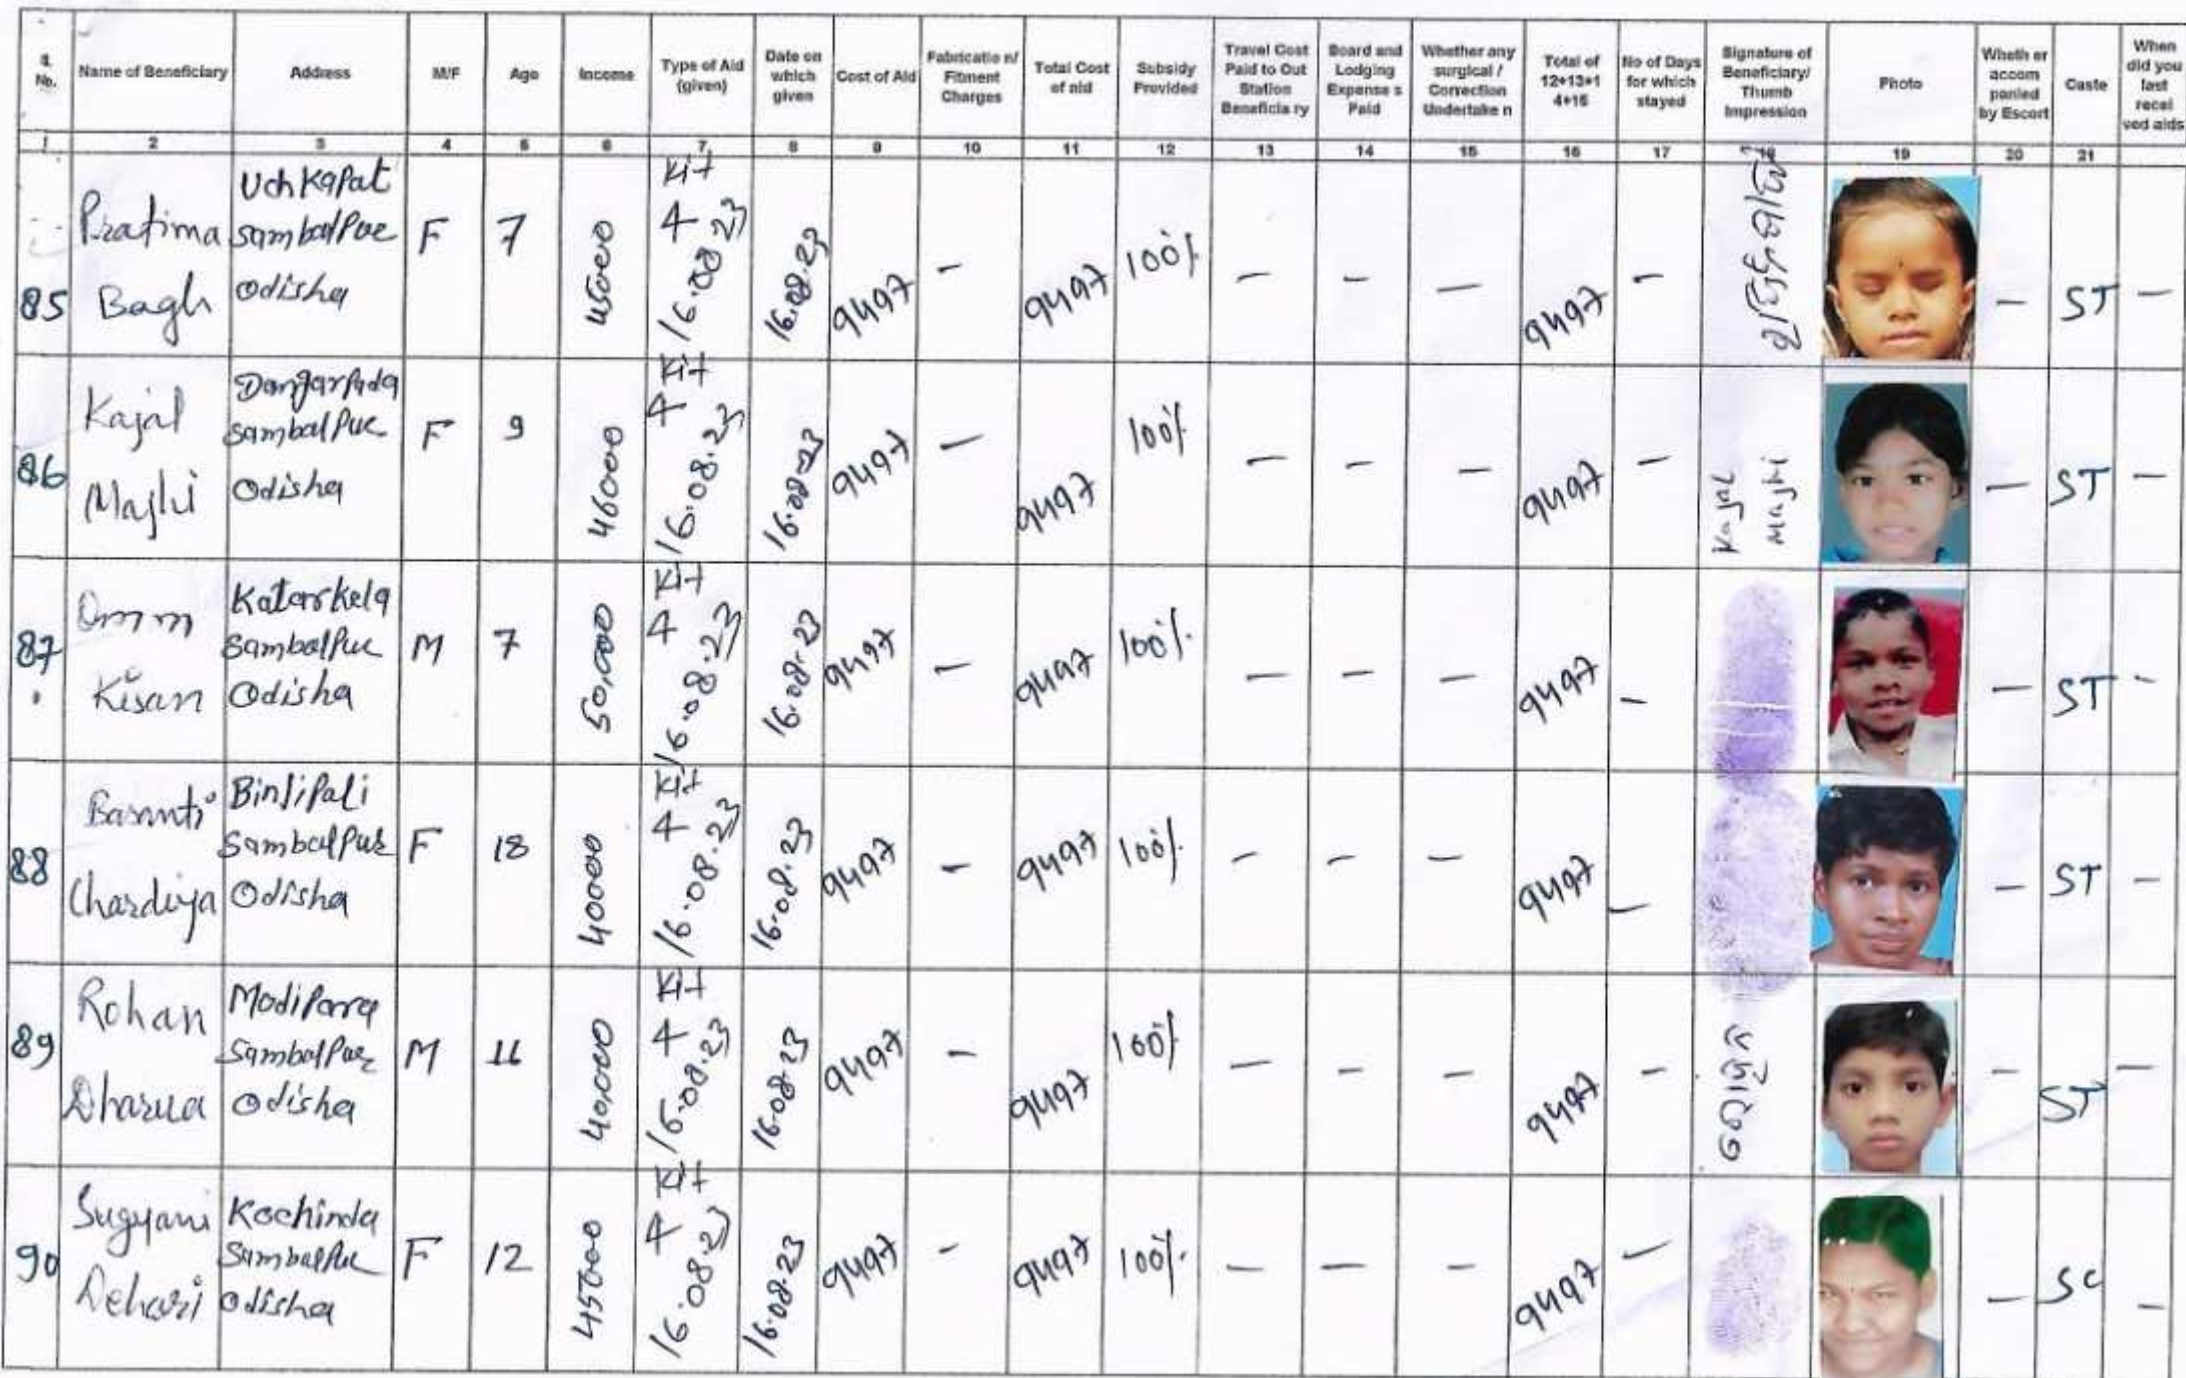 S. No. Name of Beneficiary Address M/F Age Income Type of Aid (given) Date on which given Cost of Aid Fabricatio n/ Fitment Charges Total Cost of aid Subsidy Provided Travel Cost Paid to Out Station Beneficia ry Board and Lodging Expense s Paid Whether any surgical / Correction Undertake n Total of 12+13+1 4+15 No of Days for which stayed Signature of Beneficiary/ Thumb Impression Photo Wheth er accom panied by Escort Caste When did you last recei ved aids
1 2 3 4 5 6 7 8 9 10 11 12 13 14 15 16 17 18 19 20 21
85 Pratima Bagh Uchkapat Sambalpur Odisha F 7 45000 Kit 4 16.08.23 16.08.23 9497 – 9497 100% – – – 9497 – – ST –
86 Kajal Majhi Dangarpada Sambalpur Odisha F 9 46000 Kit 4 16.08.23 16.08.23 9497 – 9497 100% – – – 9497 – Kajal Majhi – ST –
87 Omm Kisan Katarkela Sambalpur Odisha M 7 50,000 Kit 4 16.08.23 16.08.23 9497 – 9497 100% – – – 9497 – – ST –
88 Basanti Chardiya Sambalpur Odisha F 18 40000 Kit 4 16.08.23 16.08.23 9497 – 9497 100% – – – 9497 – – ST –
89 Rohan Dharua Modipara Sambalpur Odisha M 11 40,000 Kit 4 16.08.23 16.08.23 9497 – 9497 100% – – – 9497 – ରୋହିତ – ST –
90 Sugyani Dehari Kochinda Sambalpur Odisha F 12 45000 Kit 4 16.08.23 16.08.23 9497 – 9497 100% – – – 9497 – – SC –